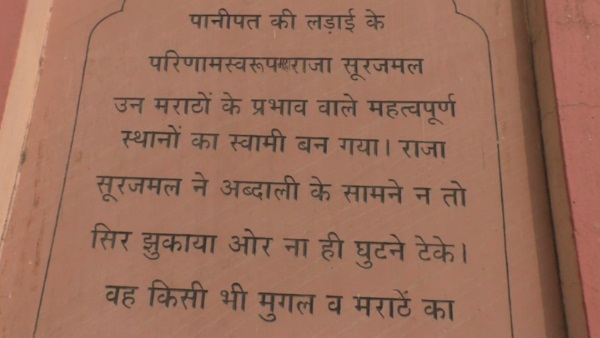 पानीपत की लड़ाई के
परिणामस्वरूप राजा सूरजमल
उन मराठों के प्रभाव वाले महत्वपूर्ण
स्थानों का स्वामी बन गया। राजा
सूरजमल ने अब्दाली के सामने न तो
सिर झुकाया ओर ना ही घुटने टेके।
वह किसी भी मुगल व मराठें का